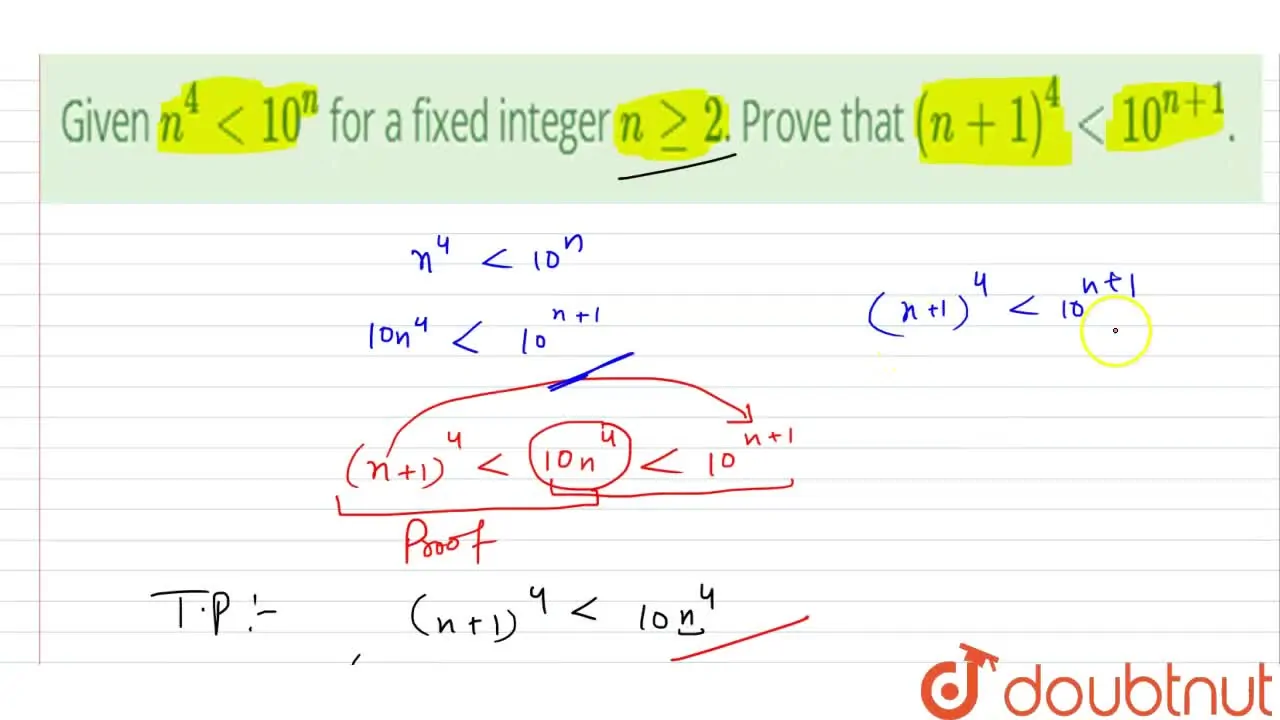 Given n⁴ < 10ⁿ for a fixed integer n ≥ 2. Prove that (n + 1)⁴ < 10ⁿ⁺¹.
n⁴ < 10ⁿ
(n+1)⁴ < 10ⁿ⁺¹
10n⁴ < 10ⁿ⁺¹
(n+1)⁴ < 10n⁴ < 10ⁿ⁺¹
Proof
T.P :- (n+1)⁴ < 10n⁴
doubtnut